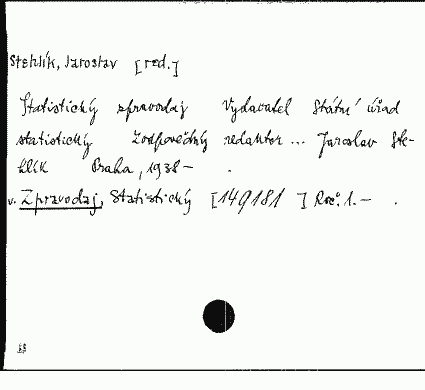 Stehlík, Jaroslav [red.]
Statistický zpravodaj Vydavatel Státní úřad
statistický Zodpovědný redaktor ... Jaroslav Ste-
hlík Praha, 1938 - .
v. Zpravodaj, Statistický [149181 ] Roč. 1. - .